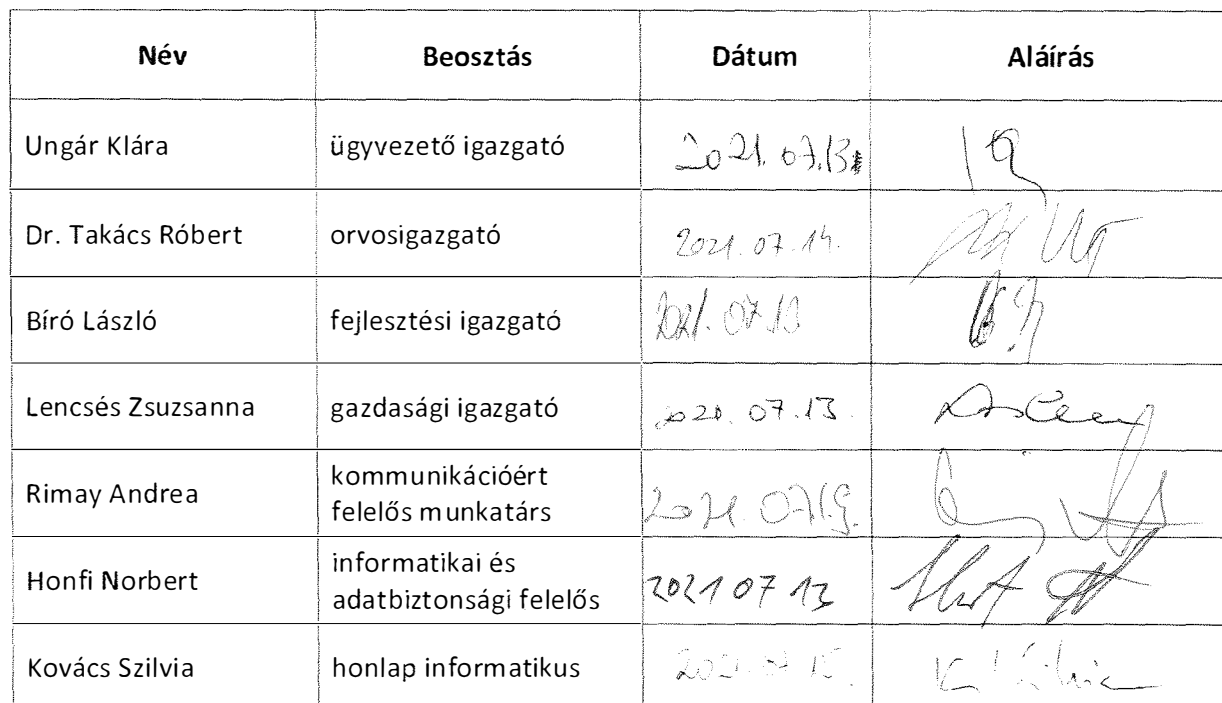 Név Beosztás Dátum Aláírás
Ungár Klára ügyvezető igazgató 2021.07.13.
Dr. Takács Róbert orvosigazgató 2021.07.14.
Bíró László fejlesztési igazgató 2021.07.13
Lencsés Zsuzsanna gazdasági igazgató 07.13.
Rimay Andrea kommunikációért
felelős munkatárs 2021.
Honfi Norbert informatikai és
adatbiztonsági felelős 2021 07 13
Kovács Szilvia honlap informatikus